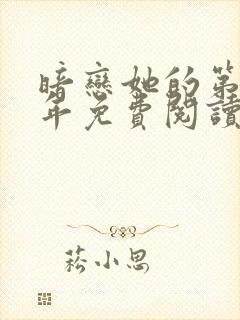 暗戀她的第
年免費閱讀
菘小思